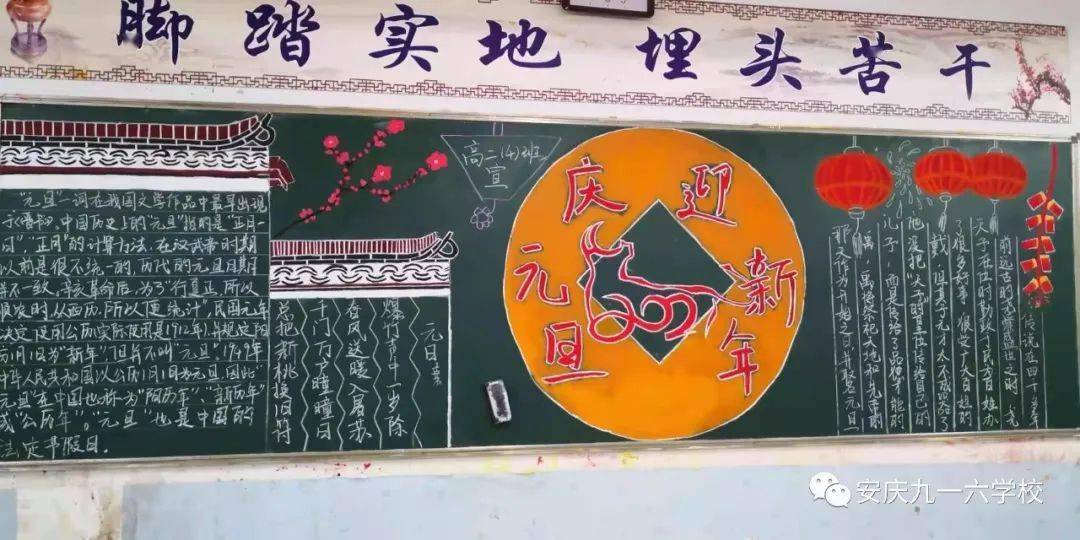 脚踏实地 埋头苦干
"元旦"一词在我国文学作品中最早出现
于《晋书》。中国历史上的"元旦"指的是"正月一
日"。"正月"的计算方法,在汉武帝时期
以前是很不统一的,历代的元旦日期
并不一致。辛亥革命后,为了"行夏正,所以
顺农时,从西历,所以便统计",民国元年
决定使用公历(实际使用是1912年),并规定阳
历1月1日为"新年",但并不叫"元旦"1949年
中华人民共和国以公历1月1日为元旦,因此"
元旦"在中国也被称为"阳历年"、"新历年"
或"公历年"。"元旦"也是中国的
法定节假日。
元日
爆竹声中一岁除
春风送暖入屠苏
千门万户曈曈日
总把新桃换旧符
高二(4)班
宣
庆元旦
迎新年
传说在四千多年
前远古的尧舜盛世之时,尧
天子在位时勤政于民为百姓办
了很多好事,很受广大百姓的
戴,但
他没把"天子"的皇位传给自己的
儿子,而是传给了品德
禹
那天作为开始之日,
安庆九一六学校